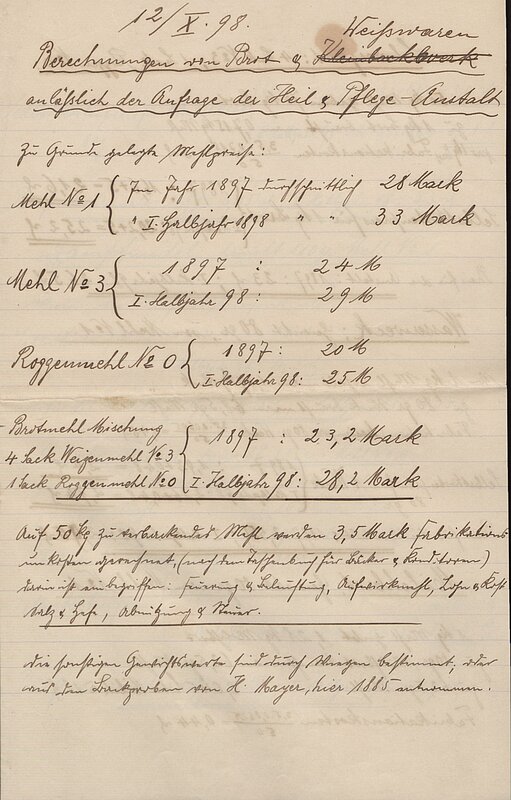 12/X. 98.
Weißwaren
Berechnungen von Brot & Kleinbackwerk
anläßlich der Anfrage der Heil & Pflege-Anstalt
Zu Grunde gelegte Mehlpreise:
Mehl No 1 { Im Jahr 1897 durchschnittlich 28 Mark
" I. Halbjahr 1898 " " 33 Mark
Mehl No 3 { 1897 : 24 M
I. Halbjahr 98: 29 M
Roggenmehl No 0 { 1897: 20 M
I. Halbjahr 98: 25 M
Brotmehl Mischung
4 Sack Weizenmehl No 3
1 Sack Roggenmehl No 0
{ 1897 : 23,2 Mark
I. Halbjahr 98: 28,2 Mark
Auf 50 kg zu verbackendes Mehl werden 3,5 Mark Fabrikations
unkosten gerechnet, (nach dem Taschenbuch für Bäcker & Konditoren)
darin ist einbegriffen: Feuerung & Beleuchtung, Aufwirkmehl, Lohn & Kost
Salz & Hefe, Abnützung & Steuer.
Die sonstigen Gewichtswerte sind durch Wiegen bestimmt, oder
aus den Backproben von H. Mayer, hier 1885 entnommen.